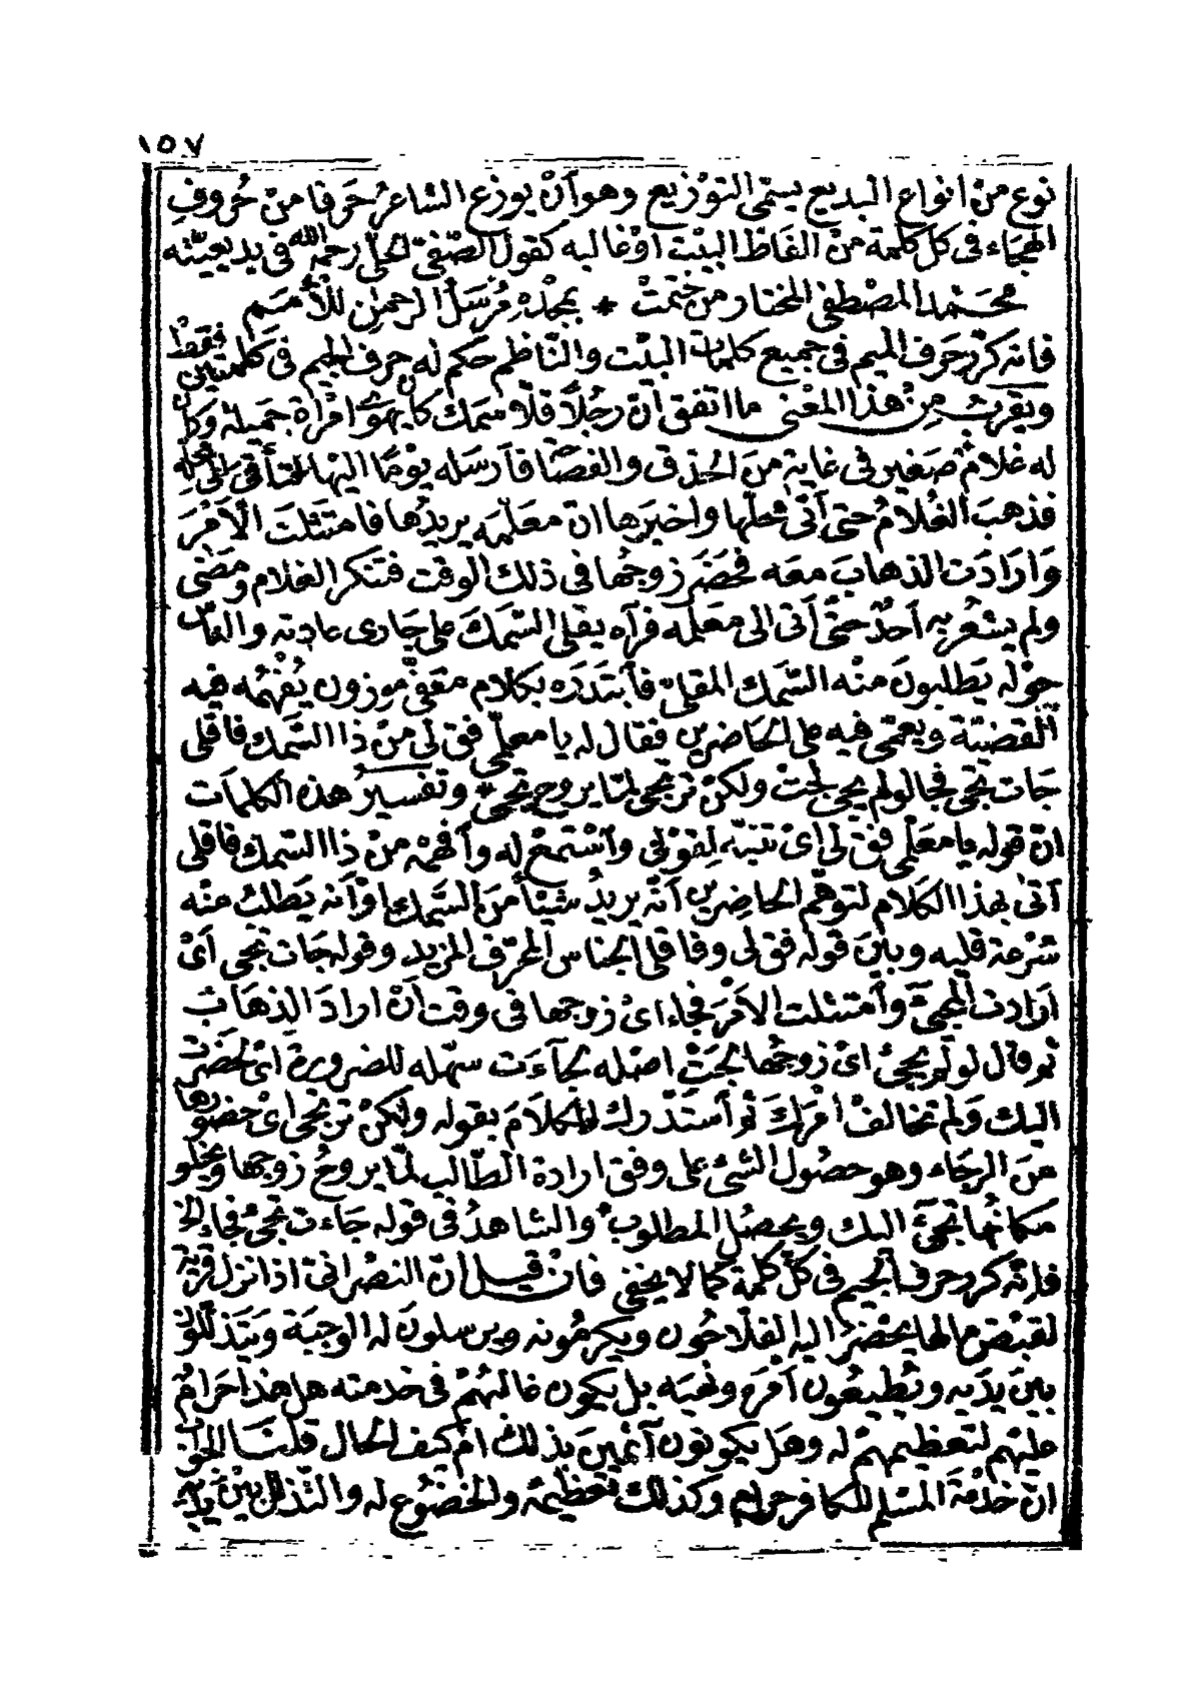 ١٥٧
نوع من انواع البديع يسمّى التوْزيع وهو أنْ يوزع الشاعرُ حَرفا منْ حُروفِ
الهجاء فى كلّ كلمة منْ الفاظ البيْت اوْ غالبه كقول الصّفىّ الحلّى رحمه الله فى بديعيّته
محَمّد المصْطفى المختار من ختمتْ * بمجْدهِ مُرْسَلُ الرحمٰنِ للأُمَمِ
فانه كرّر حَرف الميم فى جميع كلمات البيْت والنّاظم حَكم له حرف الجيم فى كلمتيْن فقطْ
ويقربُ مِنْ هذا المعْنى ما اتفق انّ رجُلاً قلّا سمك كان يهوَى امْرأة جَميلة وكان
له غلامٌ صَغير فى غاية منَ الحِذق والفصَاحة فأرسَله يوْمًا اليْها لتأتى الى محلّه
فذهبَ الغُلامُ حتى أتى محلّها واخبرَها انّ معَلّمه يريدُها فامتثلتَ الأمْرَ
وَارادَت الذهابَ معَه فحضَرَ زوجُها فى ذلك الوقت فتنكر الغلام ومَضى
ولم يشعُر به أحدٌ حتّى أتى الى معَلمه فرآه يقلى السّمَكَ على جَارى عادته والناس
حوْله يَطلبونَ منْه السّمك المقلىّ فأبتَدَره بكلام مقفّى موزون يُفْهمُه فيه
القضيّة ويعمّى فيه على الحَاضرين فقال له يا معلّمى فق لى منْ ذا السَّمك فاقلى
جَات تجى فجا لو لم يجى لجتْ ولكنْ ترتجى لمّا يروح تجى * وتفسيرُ هذه الكلمَات
انّ قوله يا معَلّمى فق لى اىْ تنبّه لِقوْلى وأسْتمعْ له وأفهمْه منْ ذا السّمك فاقلى
أتى بهذا الكلام لتوهّم الحاضِرين أنّه يريدُ شيئاً منَ السَّمك اوْ أنه يَطلبُ منْه
سُرْعة قليه وبيْنَ قوله فق لى وفاقلى الجناس المحرّف المزيد وقوله جات تجى اىْ
ارَادت المجىَّ وأمتثلت الأمْرَ فجاء اىْ زوجها فى وقت أنْ ارادَ الذهَابَ
ثم قال لو لم يجئ اىْ زوجُها لجَتْ اصْله لجآءَت سهّله للضرورة اىْ لحضرَتْ
اليك وَلم تخالفْ امْرَكَ ثم أستَدْرك الكلامَ بقوله ولكنْ ترتجى اىْ حضورها
منَ الرجَاء وهو حصُول الشىْء على وفق ارادة الطّالب لمّا يروحُ زوجُها ويخلو
مَكانُها تجىَّ اليك ويحصُل المطلوب والشاهدُ فى قوله جَاءت تجىْ فجاء الخ
فإنّه كرر حرف الجيم فى كلّ كلمة كما لا يخفى فانْ قيل انّ النصْرانىّ اذا نزل قرية
لقبْض مالها يحْضرُ اليه الفلّاحُون ويكرمُونه ويرسلونَ له الوجبة ويَتذلّلونَ
بيْنَ يدَيه ويُطيعُون أمْرَه ونهيَه بل يكون غالبُهمْ فى خدمته هل هذا حَرامٌ
عليْهم لتعظيمهمْ له وهل يكونون آثمينَ بذلك امْ كيف الحال قلنَا الجوَابُ
انّ خدْمَة المسْلم للكافر حرام وكذلك تعْظيمه والخضُوع له والتّذلل بيْن يدَيه